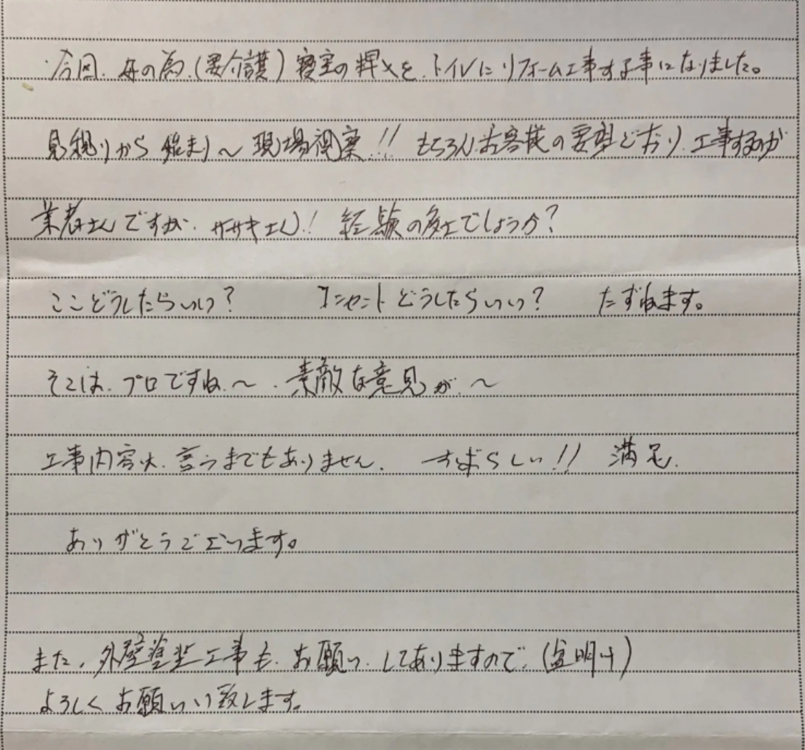 今回、母の為、(要介護) 寝室の押入を、トイレにリフォーム工事する事になりました。
見積りから始まり〜現場視察!! もちろんお客様の要望どおり、工事するのが
業者さんですが、ササキさん! 経験の多さでしょうか?
ここどうしたらいい? コンセントどうしたらいい? たずねます。
そこは、プロですね〜、素敵な意見が、〜
工事内容は、言うまでもありません、すばらしい!! 満足、
ありがとうございます。
また、外壁塗装工事も、お願いしてありますので、(盆明け)
よろしくお願いい致します。